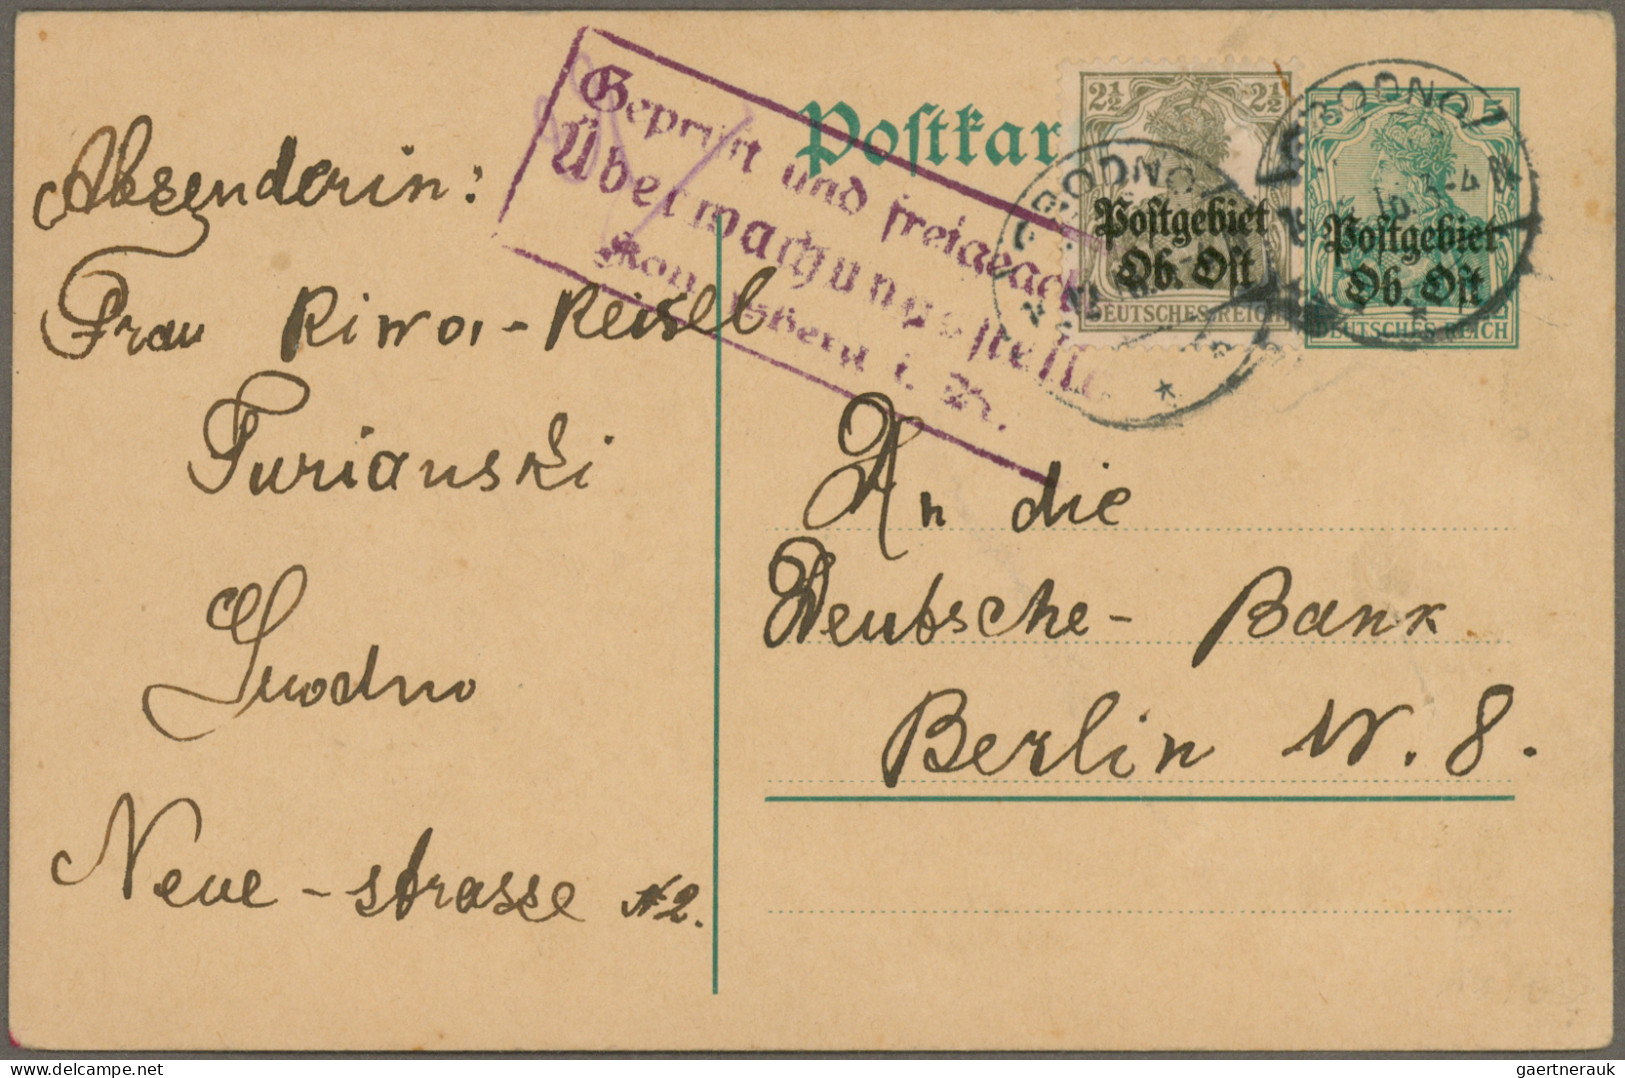 Postkar
Geprüft und freigegeb
Überwachungsstelle
Königsberg i. Pr.
2½ 2½
Postgebiet
Ob. Ost
DEUTSCHES REICH
5 5
Postgebiet
Ob. Ost
DEUTSCHES REICH
GRODNO
GRODNO
Absenderin:
Frau Riwa-Reisel
Turianski
Grodno
Neue-strasse №2.
An die
Deutsche-Bank
Berlin W. 8.
gaertnerauk